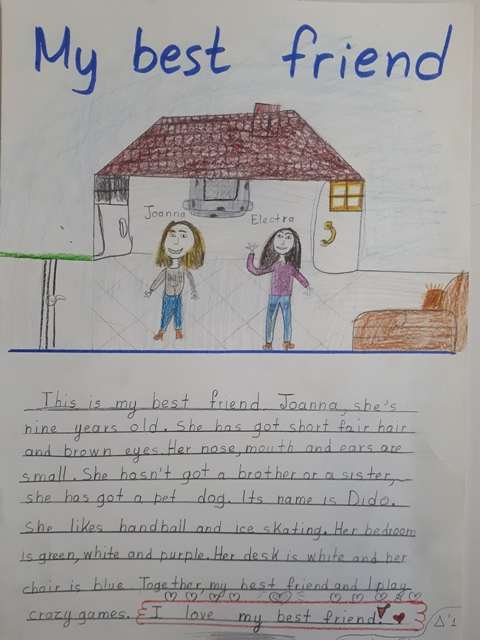 My best friend
Joanna
Electra
This is my best friend Joanna, she's
nine years old. She has got short fair hair
and brown eyes. Her nose, mouth and ears are
small. She hasn't got a brother or a sister,
she has got a pet dog. Its name is Dido.
She likes handball and ice skating. Her bedroom
is green, white and purple. Her desk is white and her
chair is blue. Together, my best friend and I play
crazy games. I love my best friend!
Δ'1